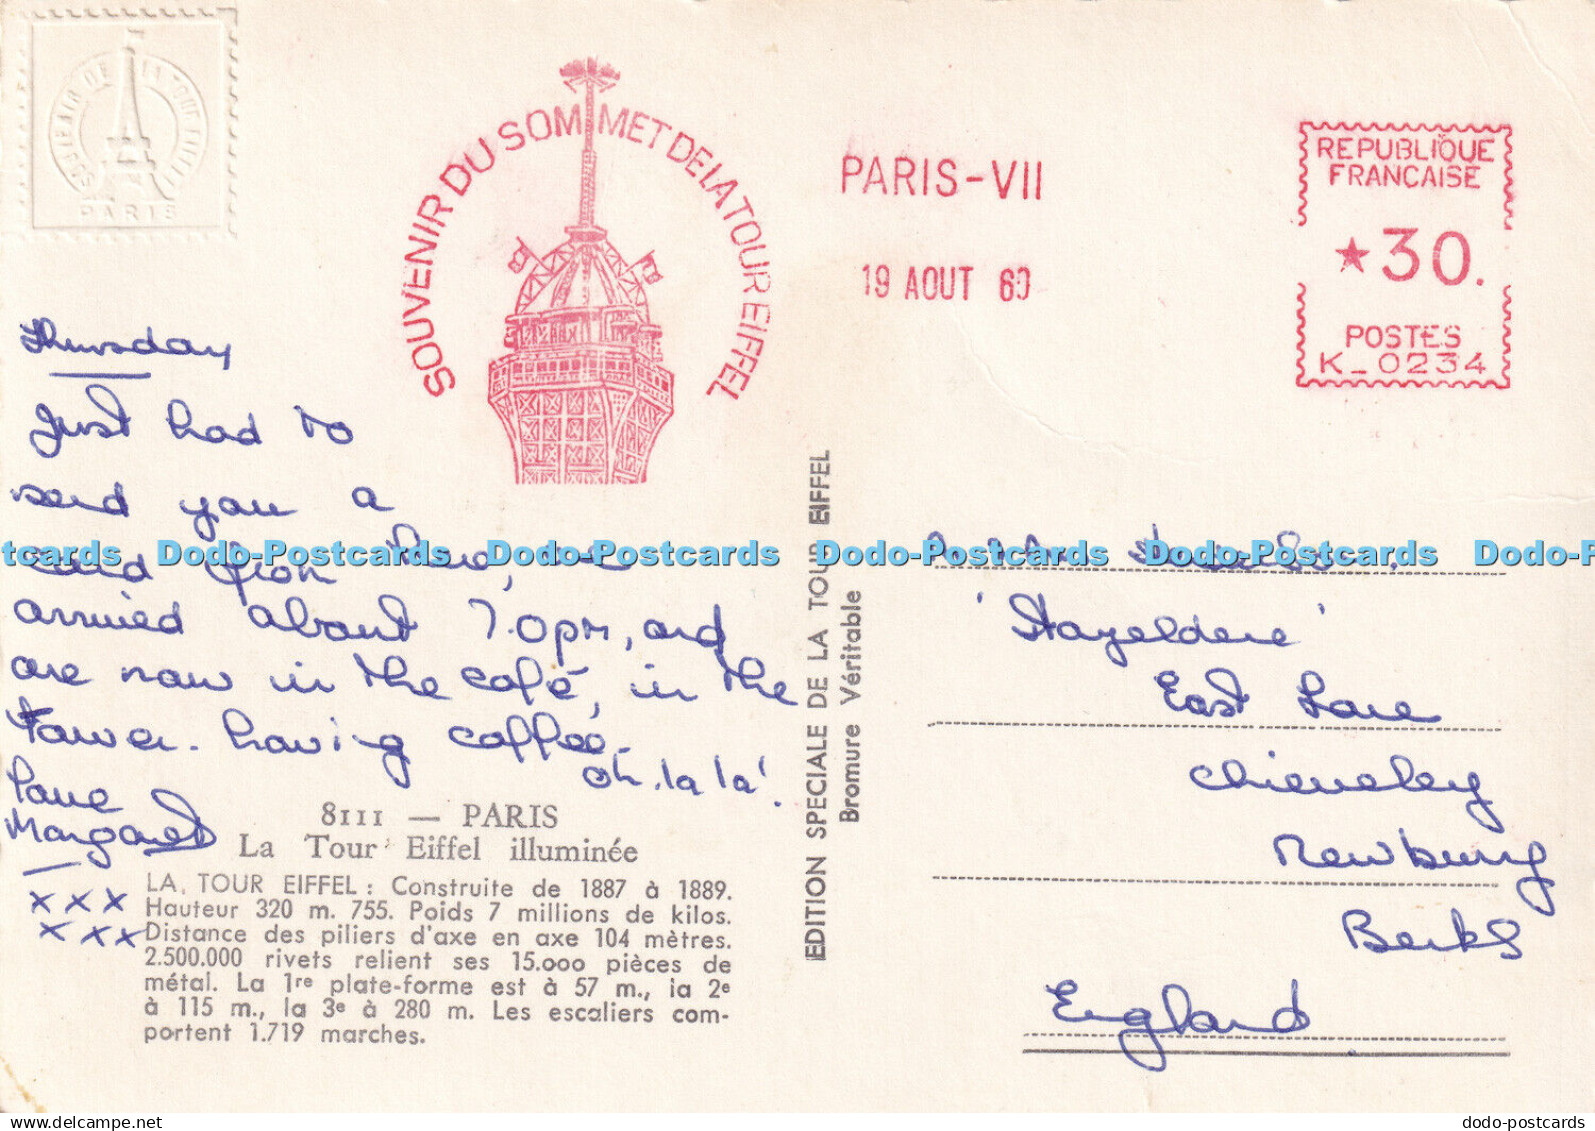 SOUVENIR DE LA TOUR EIFFEL
PARIS
SOUVENIR DU SOMMET DE LA TOUR EIFFEL
PARIS-VII
19 AOUT 60
REPUBLIQUE
FRANCAISE
★30.
POSTES
K_0234
Thursday
Just had to
send you a
card from here, we
arrived about 7.0pm, and
are now in the café, in the
Tower. having coffee.
oh. la la!
Love
Margaret
x x x
x x x
8111 — PARIS
La Tour Eiffel illuminée
LA TOUR EIFFEL : Construite de 1887 à 1889.
Hauteur 320 m. 755. Poids 7 millions de kilos.
Distance des piliers d'axe en axe 104 mètres.
2.500.000 rivets relient ses 15.000 pièces de
métal. La 1re plate-forme est à 57 m., la 2e
à 115 m., la 3e à 280 m. Les escaliers com-
portent 1.719 marches.
EDITION SPECIALE DE LA TOUR EIFFEL
Bromure Véritable
East Lane
Chieveley
Newbury
Berks
England
tcards Dodo-Postcards Dodo-Postcards Dodo-Postcards Dodo-Postcards Dodo-P
dodo-postcards